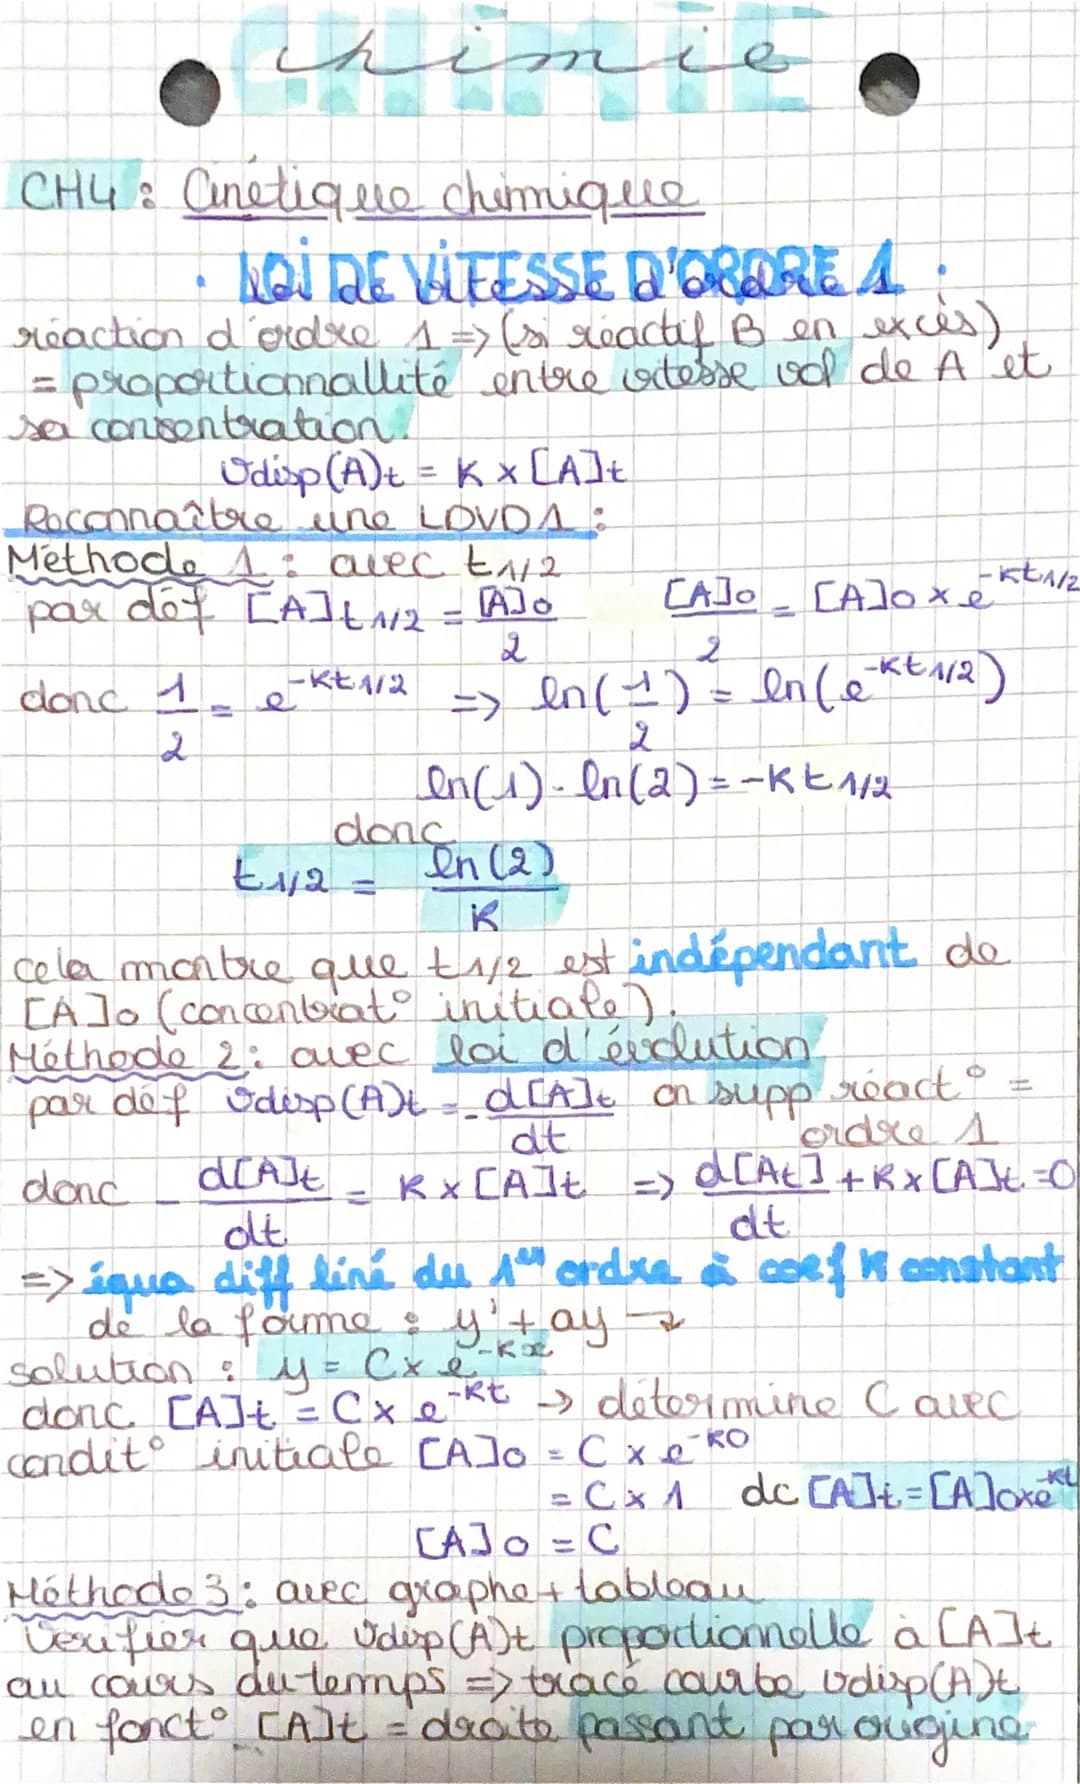 chimie
CH4 : Cinétique chimique
• LOI DE VITESSE D'ORDRE 1 :
réaction d'ordre 1 => (si réactif B en excès)
= proportionnallité entre vitesse vol de A et
sa consentration.
vdisp(A)t = K x [A]t
Reconnaître une LDVD1 :
Méthode 1 : avec t1/2
par déf [A]t1/2 = [A]0/2   [A]0/2 = [A]0 x e^-Kt1/2
donc 1/2 = e^-Kt1/2 => ln(1/2) = ln(e^-Kt1/2)
ln(1) - ln(2) = -Kt1/2
donc
t1/2 = ln(2)/K
cela montre que t1/2 est indépendant de
[A]0 (concentrat° initiale).
Méthode 2 : avec loi d'évolution
par déf vdisp(A)t = -d[A]t/dt on supp réact° =
ordre 1
donc -d[A]t/dt = K x [A]t => d[At]/dt + K x [A]t = 0
=> équa diff liné du 1er ordre à coef K constant
de la forme : y' + ay →
solution : y = C x e^-Kx
donc [A]t = C x e^-Kt → détermine C avec
condit° initiale [A]0 = C x e^-K0
= C x 1 dc [A]t = [A]0xe^-Kt
[A]0 = C
Méthode 3 : avec graphe + tableau
Vérifier que vdisp(A)t proportionnelle à [A]t
au cours du temps => tracé courbe vdisp(A)t
en fonct° [A]t = droite passant par origine